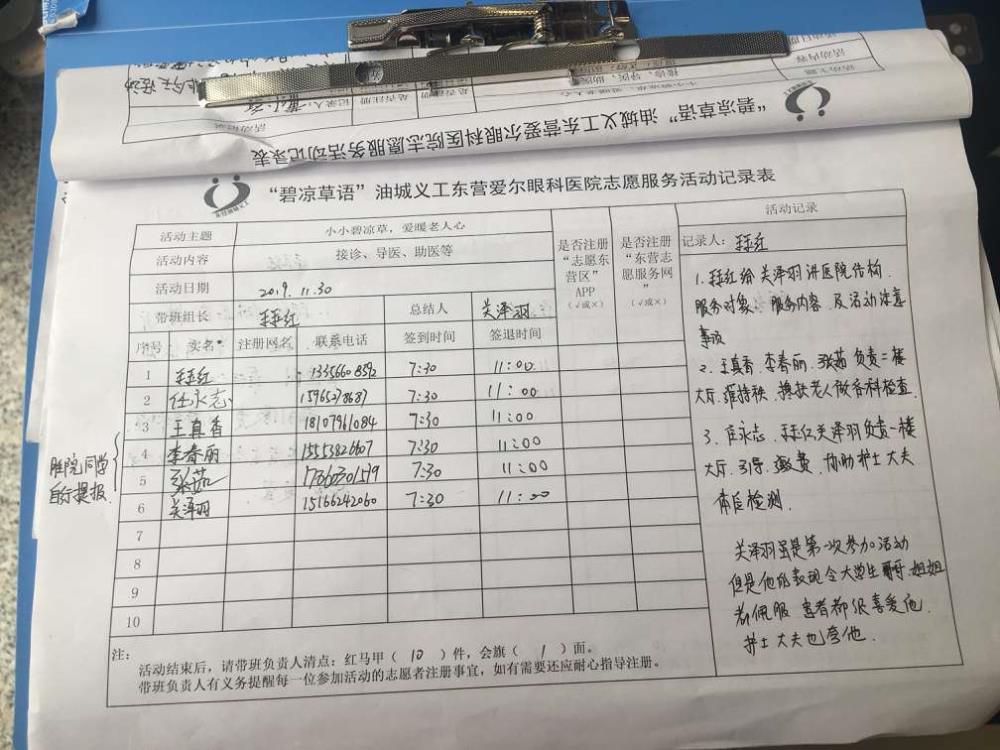 “碧凉草语”油城义工东营爱尔眼科医院志愿服务活动记录表
“碧凉草语”油城义工东营爱尔眼科医院志愿服务活动记录表
活动主题 小小碧凉草，爱暖老人心
活动内容 接诊、导医、助医等
活动日期 2019.11.30
带班组长 总结人 关泽羽
是否注册“志愿东营区”APP（√或×）
是否注册“东营志愿服务网”（√或×）
序号 实名* 注册网名 联系电话 签到时间 签退时间
1 13356608592 7:30 11:00
2 任永志 15965278687 7:30 11:00
3 王真香 18107961084 7:30 11:00
4 李春丽 15553826607 7:30 11:00
5 张茹 17860301579 7:30 11:00
6 关泽羽 15166242060 7:30 11:00
7
8
9
10
胜院同学
自行提报
活动记录
记录人：
1. 给关泽羽讲医院结构.
服务对象、服务内容 及活动注意
事项
2. 王真香 李春丽. 张茹 负责二楼
大厅. 维持秩. 搀扶老人做各科检查.
3. 任永志. 关泽羽负责一楼
大厅. 引导. 缴费. 协助护士大夫
体征检测.
关泽羽虽是第一次参加活动
但是他的表现令大学生哥哥.姐姐
都佩服 患者都很喜爱他.
护士大夫也夸他.
注：
活动结束后，请带班负责人清点：红马甲（ 10 ）件，会旗（ 1 ）面。
带班负责人有义务提醒每一位参加活动的志愿者注册事宜，如有需要还应耐心指导注册。